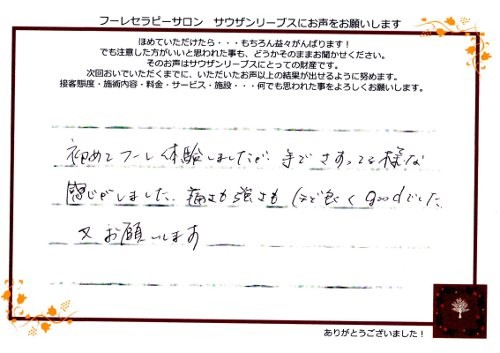 フーレセラピーサロン　サウザンリーブスにお声をお願いします
ほめていただけたら・・・もちろん益々がんばります！
でも注意した方がいいと思われた事も、どうかそのままお聞かせください。
そのお声はサウザンリーブスにとっての財産です。
次回おいでいただくまでに、いただいたお声以上の結果が出せるように努めます。
接客態度・施術内容・料金・サービス・施設・・・何でも思われた事をよろしくお願いします。
初めてフーレ体験しましたが 手でさすってる様な
感じがしました。痛さも強さもほど良くgoodでした
又お願いします
ありがとうございました！